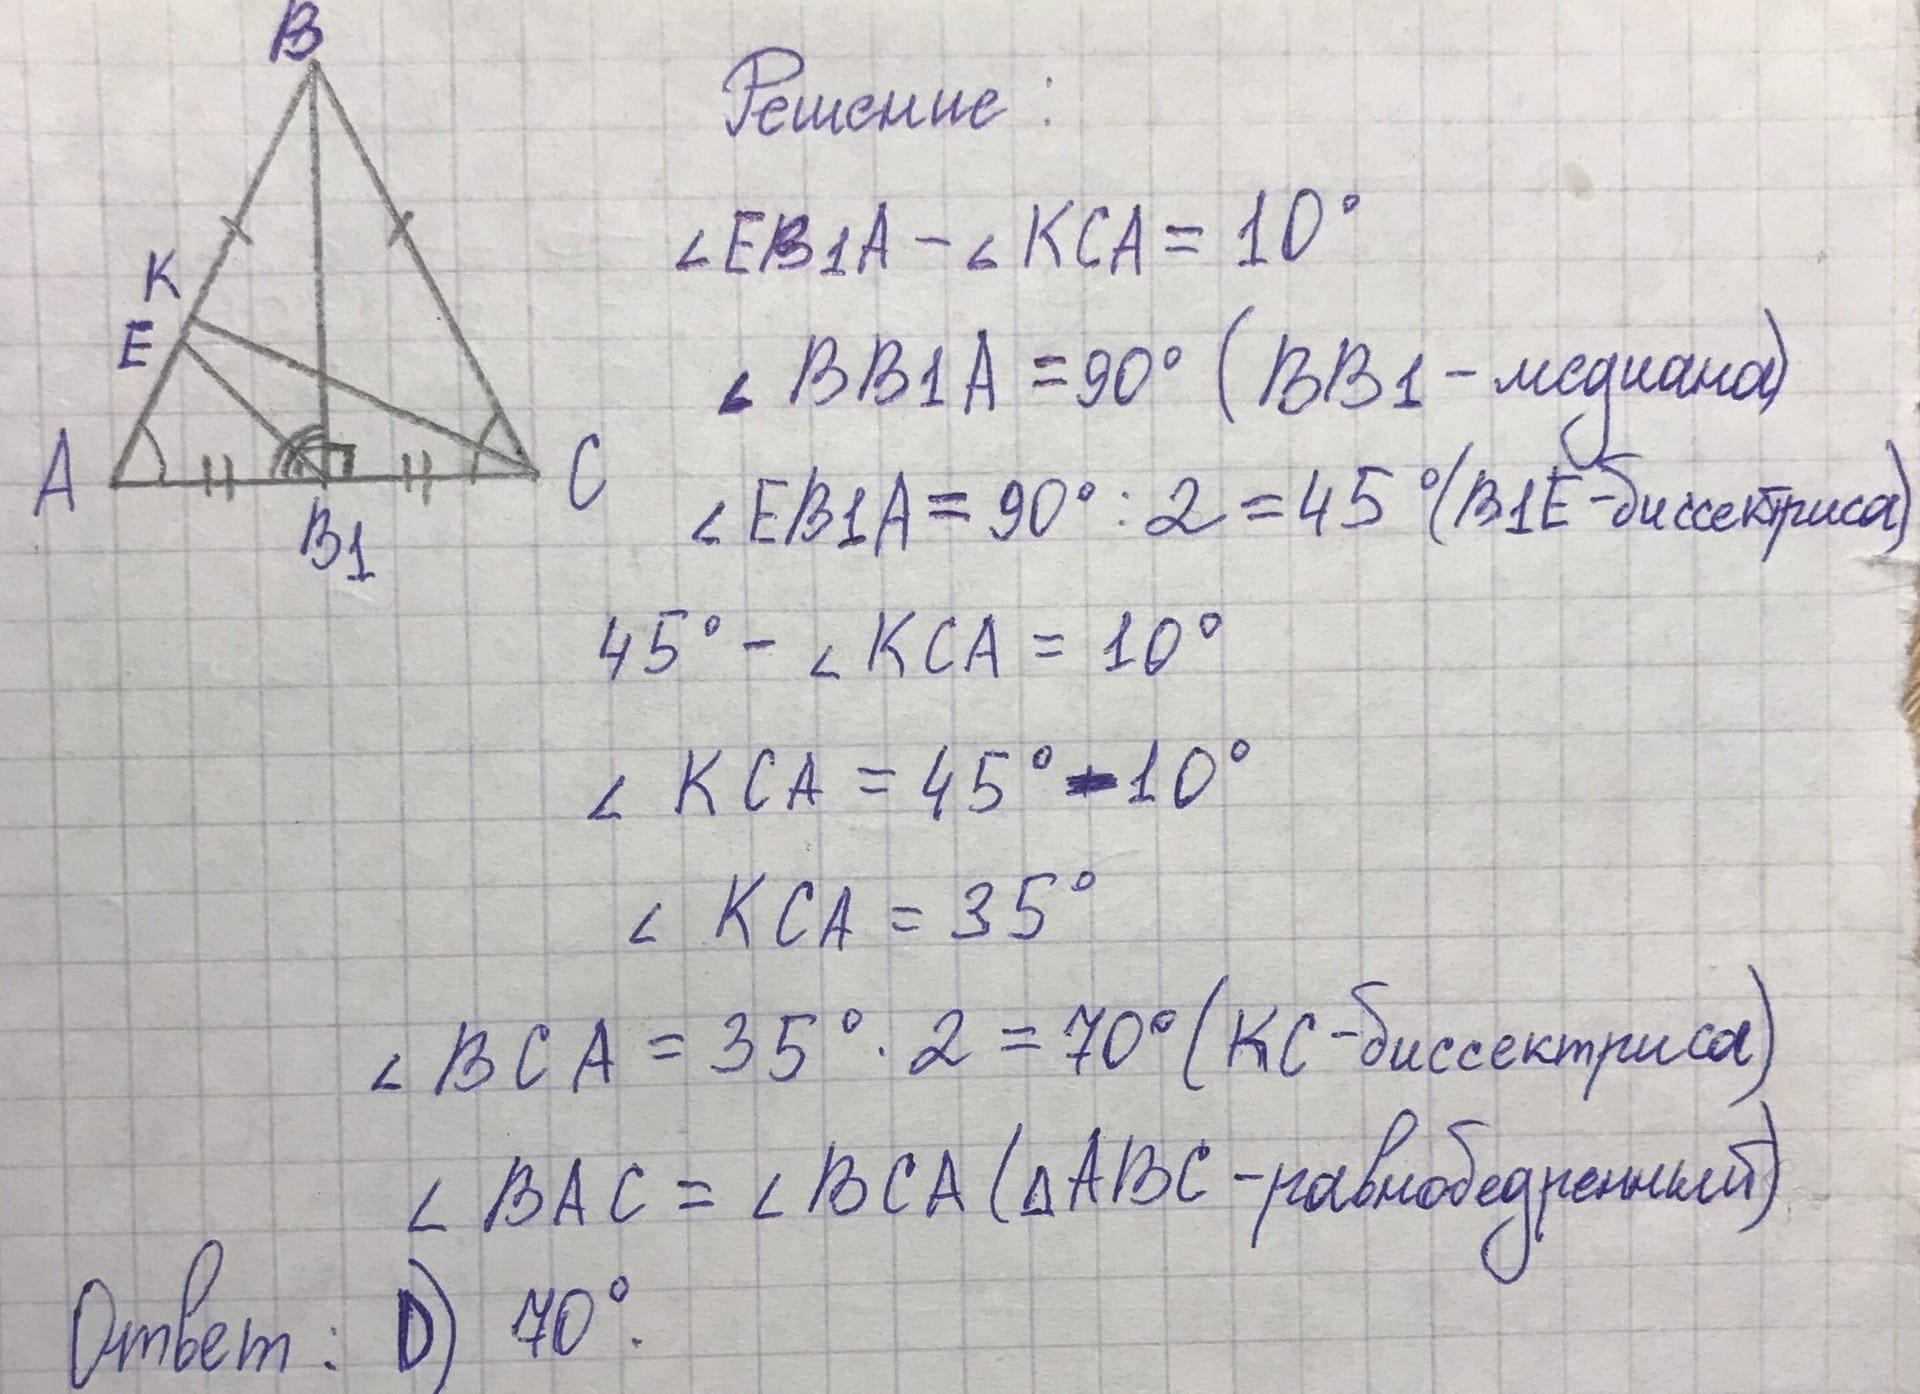 B
K
E
A
C
B1
Решение:
∠EB1A - ∠KCA = 10°
∠BB1A = 90° (BB1 - медиана)
∠EB1A = 90° : 2 = 45° (B1E - биссектриса)
45° - ∠KCA = 10°
∠KCA = 45° - 10°
∠KCA = 35°
∠BCA = 35° · 2 = 70° (KC - биссектриса)
∠BAC = ∠BCA (△ABC - равнобедренный)
Ответ: D) 70°.